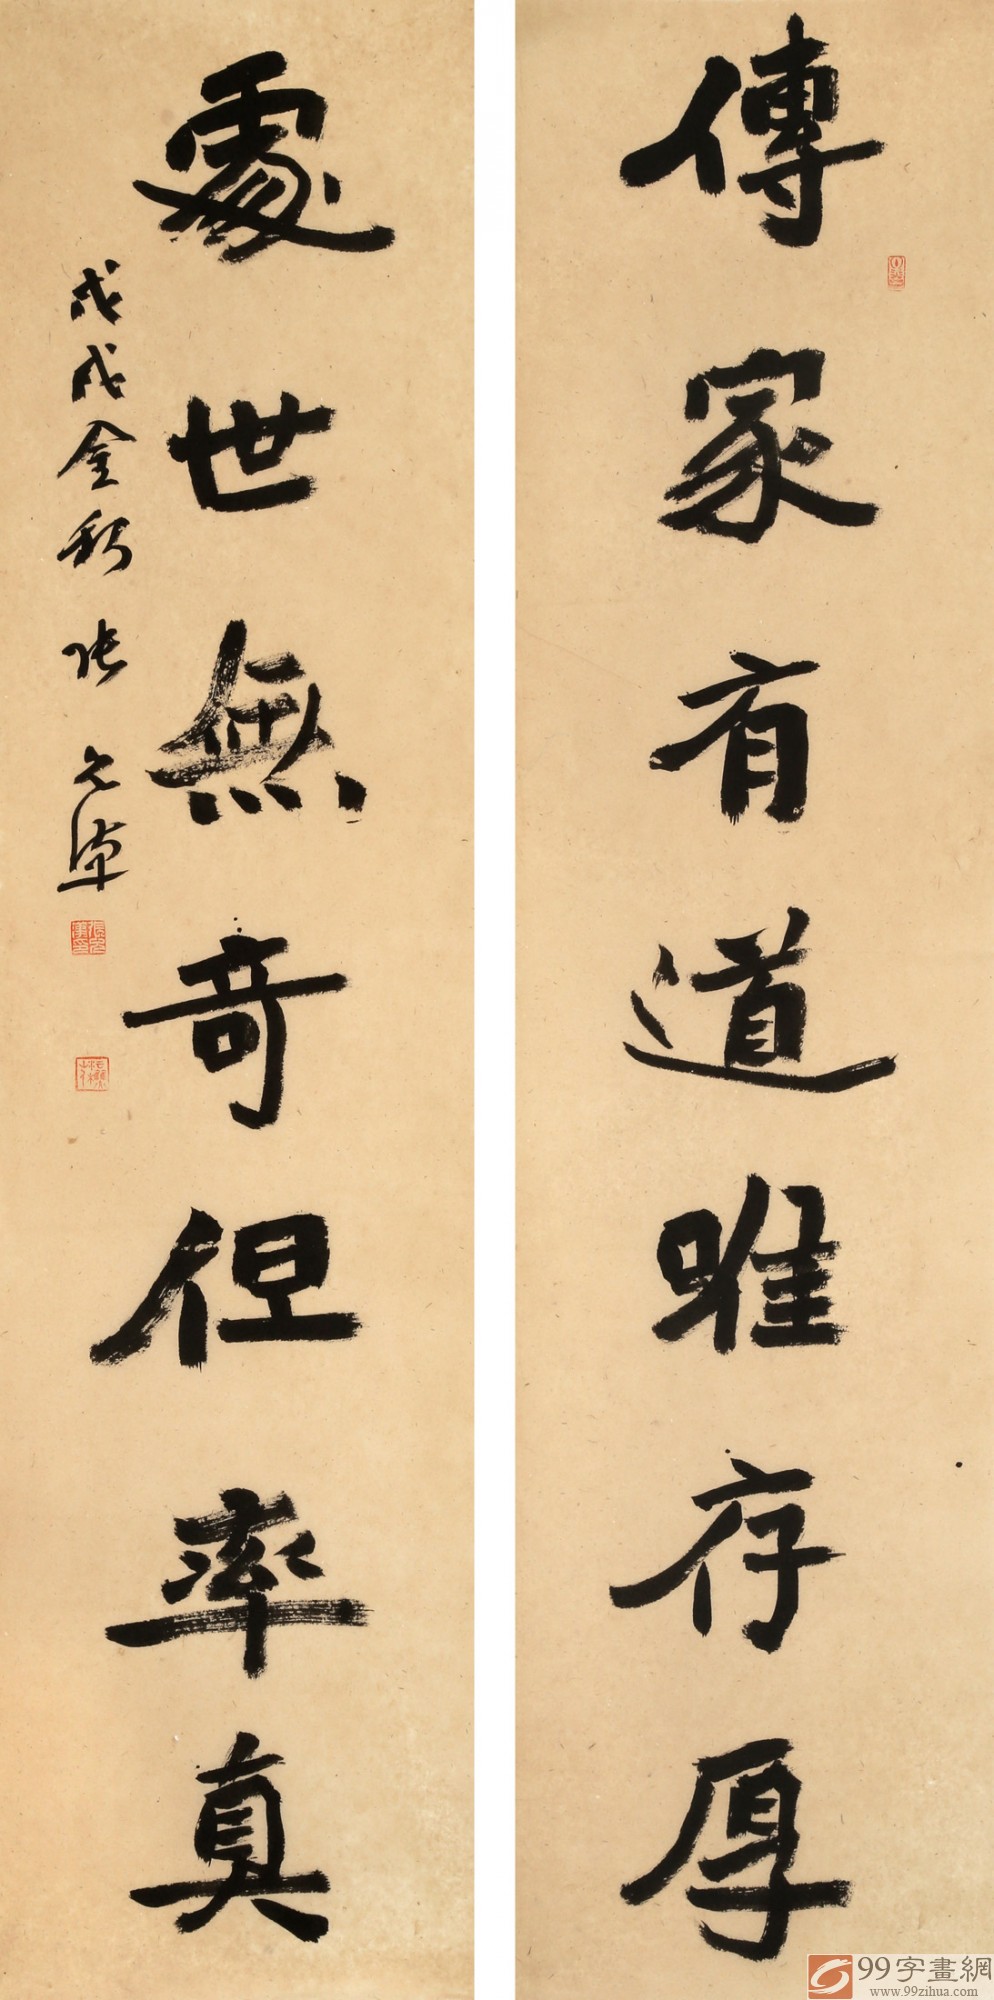 傳家有道唯存厚
處世無奇但率真
戊戌金秋 张
99字畫網
www.99zihua.com